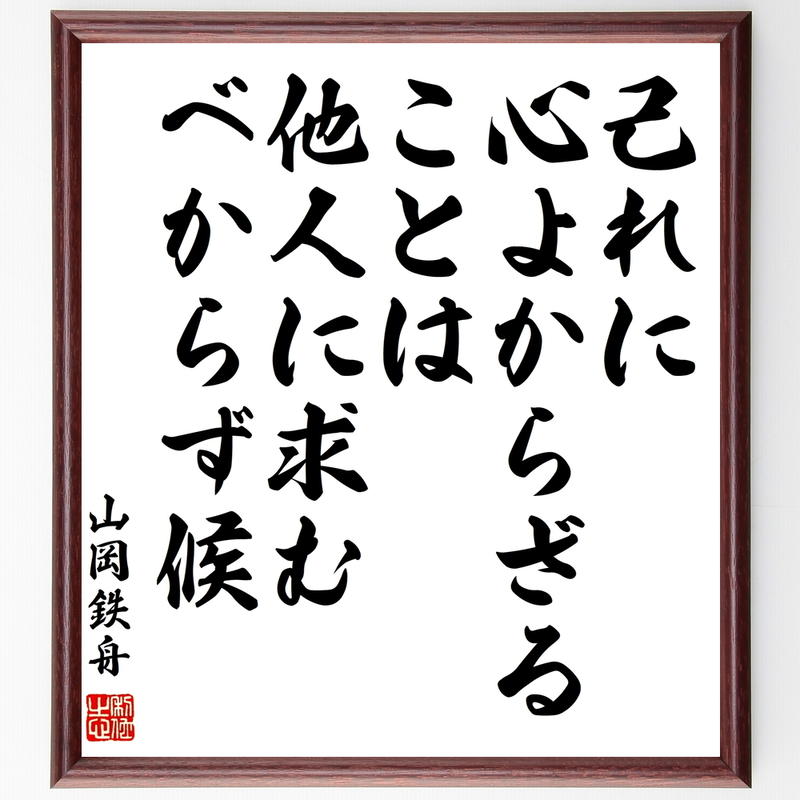 己れに
心よからざる
ことは
他人に求む
べからず候
山岡鉄舟